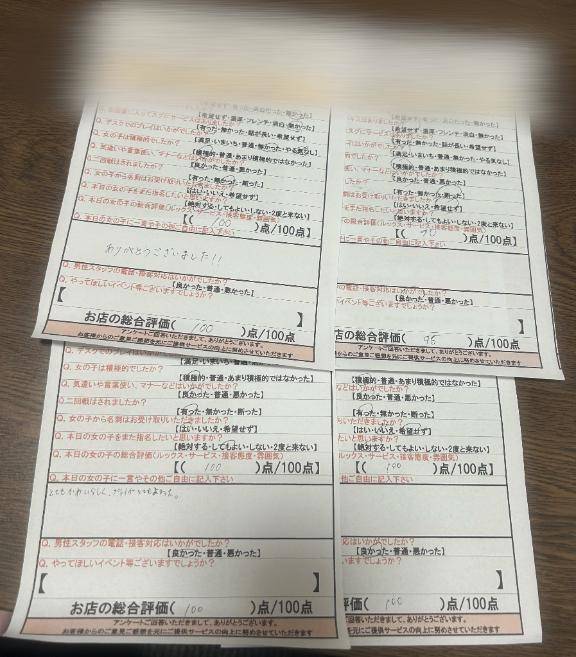 【希望せず・濃厚・フレンチ・淡白・無かった】
【有った・無かった・話が長い・希望せず】
【満足・いまいち・普通・無かった・やる気なし】
Q. 女の子は積極的でしたか？
【積極的・普通・あまり積極的ではなかった】
Q. 気遣いや言葉使い、マナーなどはいかがでしたか？
【良かった・普通・悪かった】
Q. 二回戦はされましたか？
【有った・無かった・断った】
Q. 女の子から名刺はお受け取りいただきましたか？
【はい・いいえ・希望せず】
Q. 本日の女の子をまた指名したいと思いますか？
【絶対する・してもよい・しない・2度と来ない】
Q. 本日の女の子の総合評価(ルックス・サービス・接客態度・雰囲気)
【( 100 )点/100点】
Q. 本日の女の子に一言やその他ご自由に記入下さい
ありがとうございました!!
Q. 男性スタッフの電話・接客対応はいかがでしたか？
【良かった・普通・悪かった】
Q. やってほしいイベント等ございますでしょうか？
【
お店の総合評価( 100 )点/100点
アンケートご回答いただきまして、ありがとうございます。
お客様からのご意見ご感想を元にご提供サービスの向上に努めさせていただきます
【希望せず・濃厚・フレンチ・淡白・無かった】
【有った・無かった・話が長い・希望せず】
【満足・いまいち・普通・無かった・やる気なし】
【積極的・普通・あまり積極的ではなかった】
【良かった・普通・悪かった】
【有った・無かった・断った】
【はい・いいえ・希望せず】
【絶対する・してもよい・しない・2度と来ない】
の総合評価(ルックス・サービス・接客態度・雰囲気)
)点/100点】
に一言やその他ご自由に記入下さい
の電話・接客対応はいかがでしたか？
【良かった・普通・悪かった】
イベント等ございますでしょうか？
】
店の総合評価( 95 )点/100点
アンケートご回答いただきまして、ありがとうございます。
からのご意見ご感想を元にご提供サービスの向上に努めさせていただきます
【満足・いまいち・普通・無かった・やる気なし】
Q. 女の子は積極的でしたか？
【積極的・普通・あまり積極的ではなかった】
Q. 気遣いや言葉使い、マナーなどはいかがでしたか？
【良かった・普通・悪かった】
Q. 二回戦はされましたか？
【有った・無かった・断った】
Q. 女の子から名刺はお受け取りいただきましたか？
【はい・いいえ・希望せず】
Q. 本日の女の子をまた指名したいと思いますか？
【絶対する・してもよい・しない・2度と来ない】
Q. 本日の女の子の総合評価(ルックス・サービス・接客態度・雰囲気)
【( 100 )点/100点】
Q. 本日の女の子に一言やその他ご自由に記入下さい
Q. 男性スタッフの電話・接客対応はいかがでしたか？
【良かった・普通・悪かった】
Q. やってほしいイベント等ございますでしょうか？
【 】
お店の総合評価( 100 )点/100点
アンケートご回答いただきまして、ありがとうございます。
お客様からのご意見ご感想を元にご提供サービスの向上に努めさせていただきます
【積極的・普通・あまり積極的ではなかった】
などはいかがでしたか？
【良かった・普通・悪かった】
【有った・無かった・断った】
いただきましたか？
【はい・いいえ・希望せず】
たいと思いますか？
【絶対する・してもよい・しない・2度と来ない】
ルックス・サービス・接客態度・雰囲気)
【( 100 )点/100点】
他ご自由に記入下さい
はいかがでしたか？
【良かった・普通・悪かった】
いますでしょうか？
】
評価( 100 )点/100点
ご回答いただきまして、ありがとうございます。
を元にご提供サービスの向上に努めさせていただきます